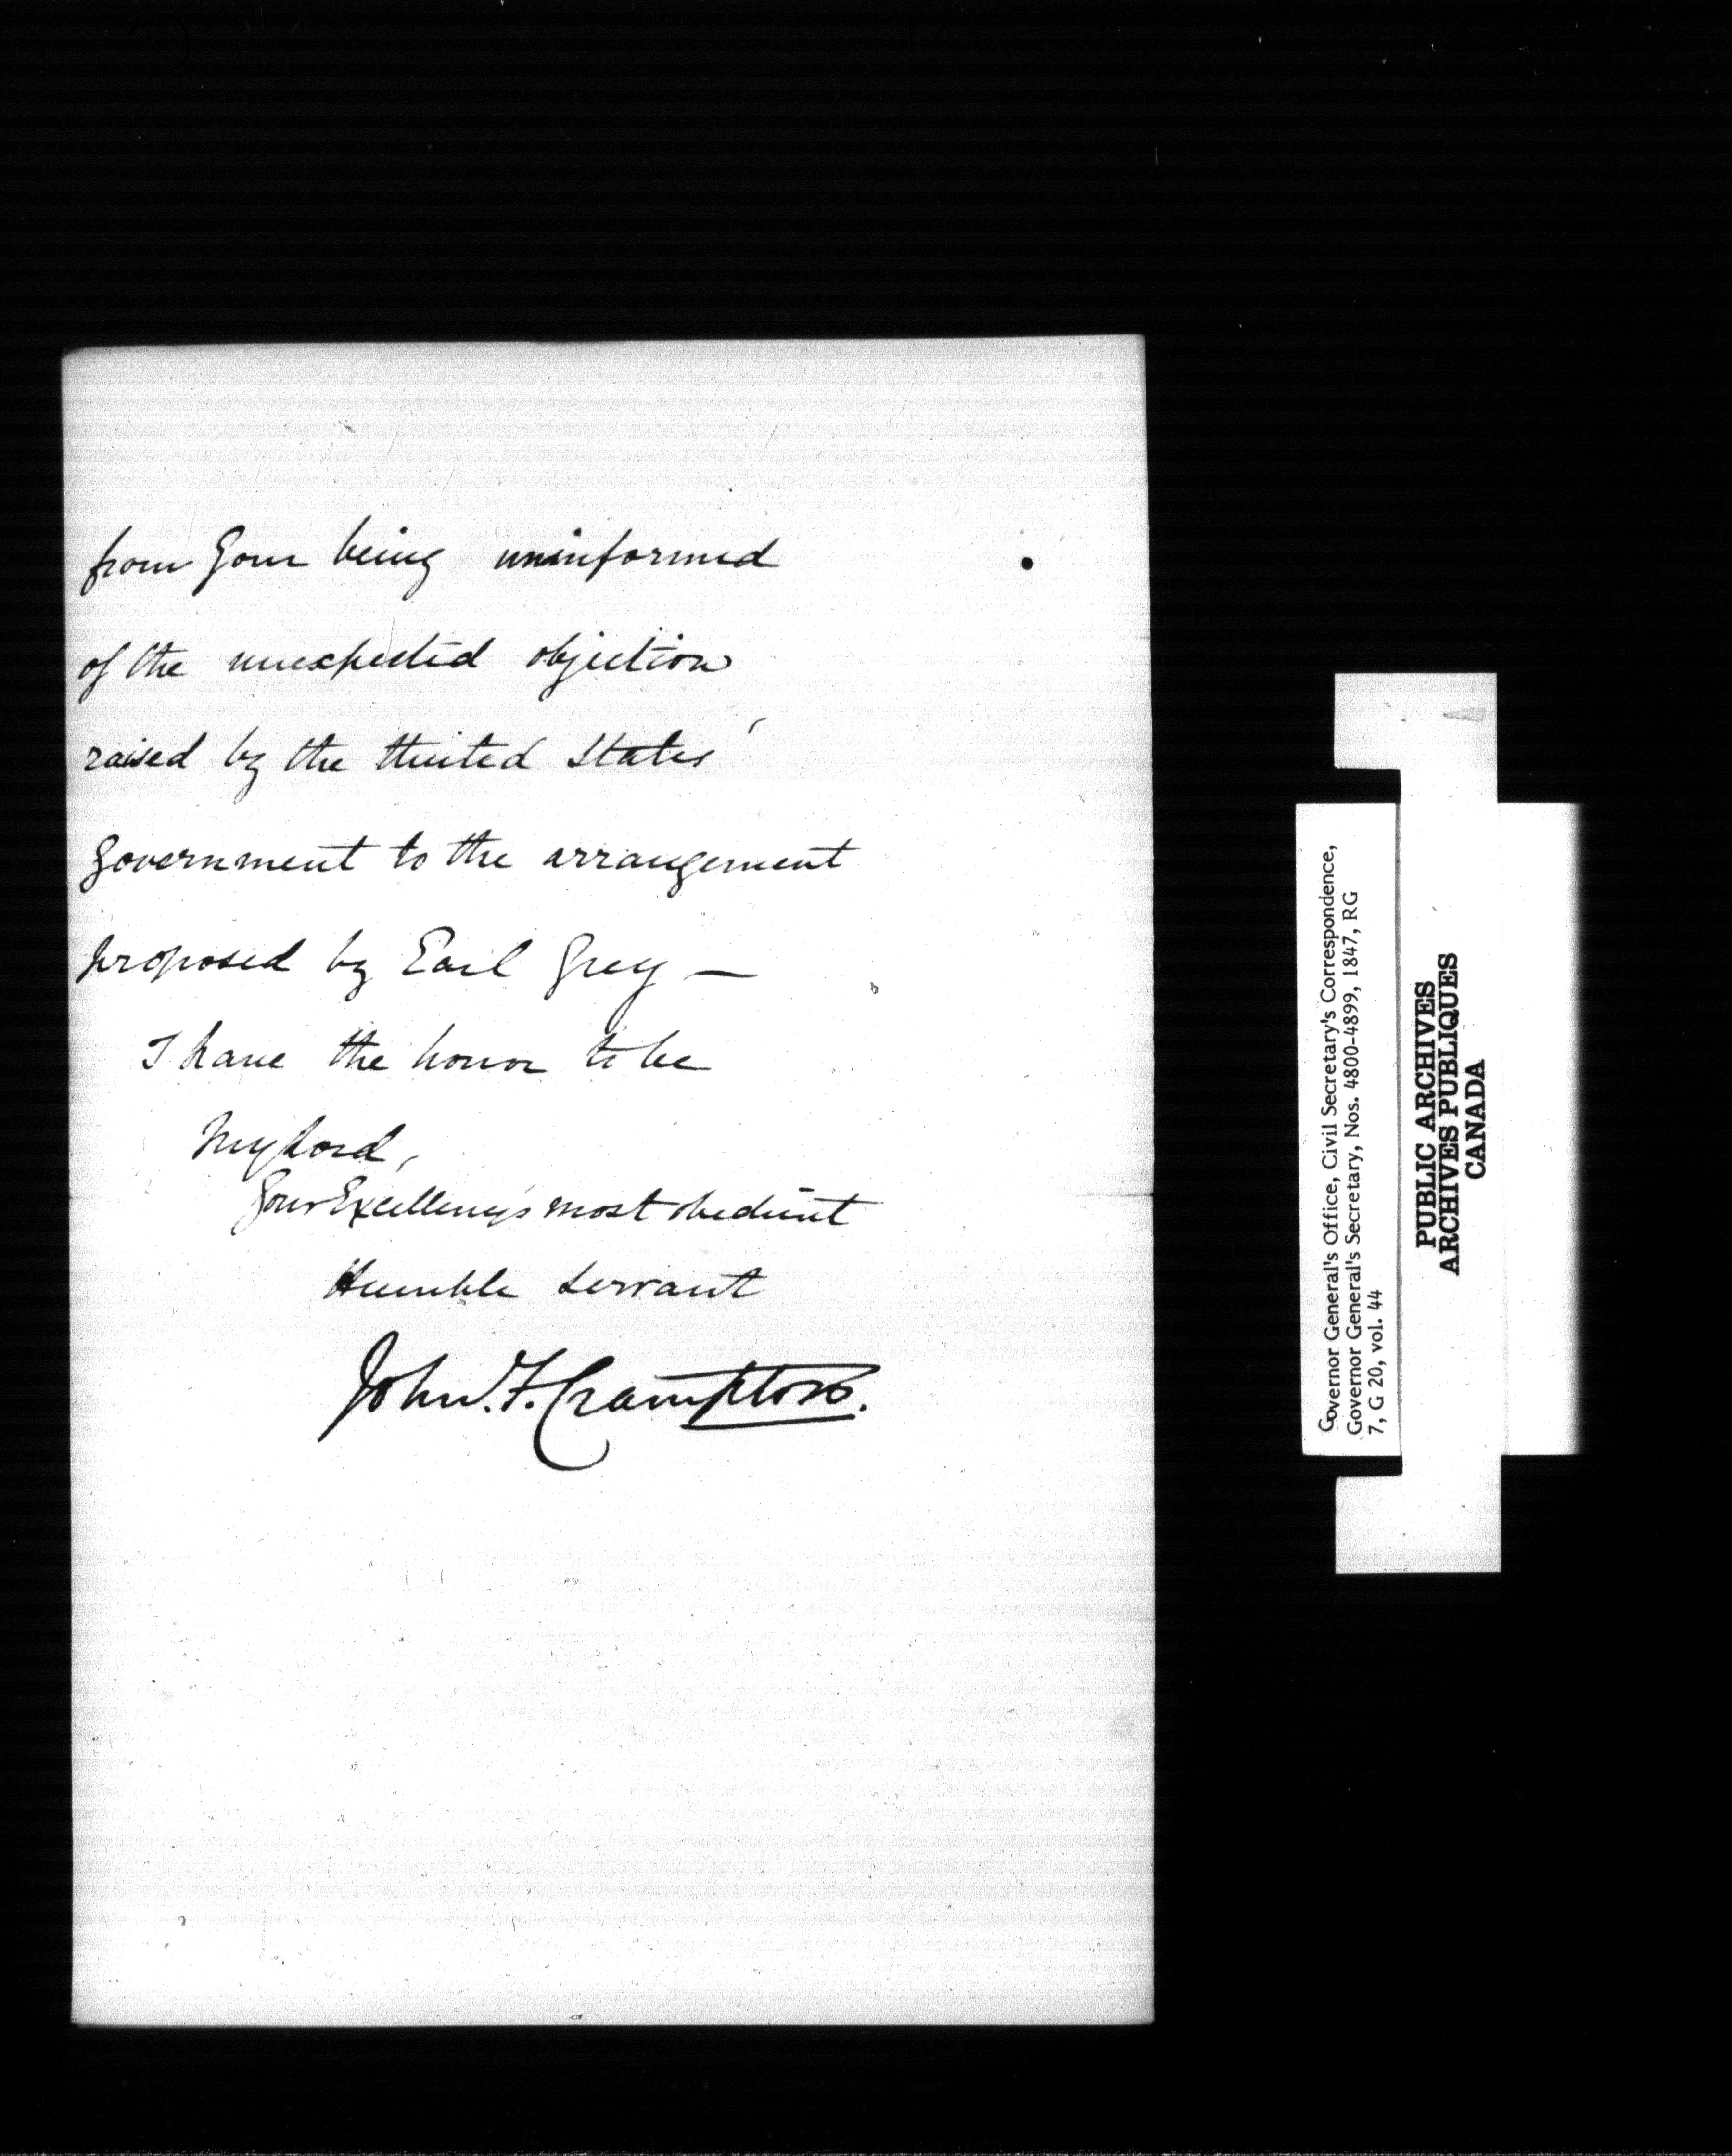 from Your being uninformed
of the unexpected objection
raised by the United States'
Government to the arrangement
proposed by Earl Grey —
I have the honor to be
My Lord,
Your Excellency's most obedient
Humble Servant
John. F. Crampton.
Governor General's Office, Civil Secretary's Correspondence,
Governor General's Secretary, Nos. 4800-4899, 1847, RG
7, G 20, vol. 44
PUBLIC ARCHIVES
ARCHIVES PUBLIQUES
CANADA